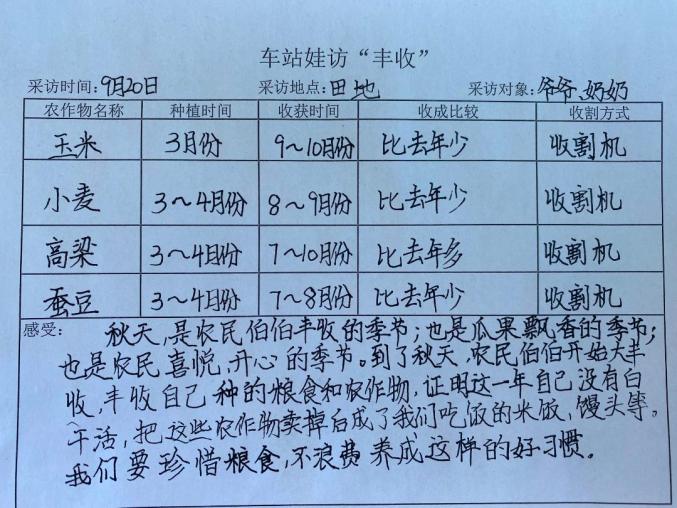 车站娃访“丰收”
采访时间：9月20日 采访地点：田地 采访对象：爷爷、奶奶
农作物名称 种植时间 收获时间 收成比较 收割方式
玉米 3月份 9～10月份 比去年少 收割机
小麦 3～4月份 8～9月份 比去年少 收割机
高梁 3～4月份 7～10月份 比去年多 收割机
蚕豆 3～4月份 7～8月份 比去年少 收割机
感受： 秋天，是农民伯伯丰收的季节；也是瓜果飘香的季节；
也是农民喜悦，开心的季节。到了秋天，农民伯伯开始大丰
收，丰收自己种的粮食和农作物，证明这一年自己没有白
干活，把这些农作物卖掉后成了我们吃饭的米饭、馒头等。
我们要珍惜粮食，不浪费养成这样的好习惯。